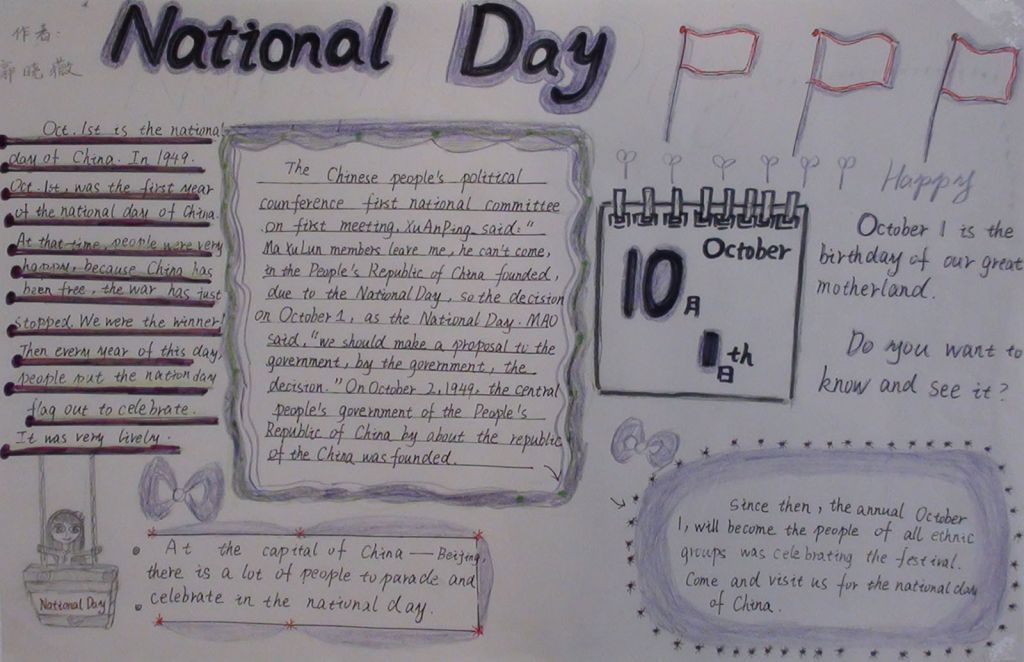 National Day
作者:
郭晓薇
Oct. 1st is the national
day of China. In 1949.
Oct. 1st, was the first year
of the national day of China.
At that time, people were very
happy, because China has
been free, the war has just
stopped. We were the winner!
Then every year of this day,
people put the nationday
flag out to celebrate.
It was very lively.
The Chinese people's political
counference first national committee
on first meeting, XuAnPing said: "
Ma XuLun members leave me, he can't come,
in the People's Republic of China founded,
due to the National Day, so the decision
on October 1, as the National Day. MAO
said, "we should make a proposal to the
government, by the government, the
decision." On October 2, 1949, the central
people's government of the People's
Republic of China by about the republic
of the China was founded.
October
10月
1th
日
Happy
October 1 is the
birthday of our great
motherland.
Do you want to
know and see it?
National Day
At the capital of China — Beijing,
there is a lot of people to parade and
celebrate in the national day.
Since then, the annual October
1, will become the people of all ethnic
groups was celebrating the festival.
Come and visit us for the national day
of China.